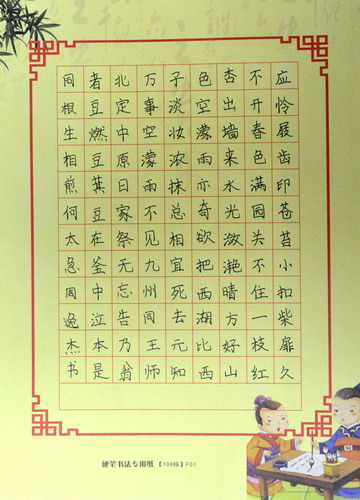 应怜屐齿印苍苔小扣柴扉久
不开春色满园关不住一枝红
杏出墙来水光潋滟晴方好山
色空濛雨亦奇欲把西湖比西
子淡妆浓抹总相宜死去元知
万事空濛雨不见九州同王师
北定中原日家祭无忘告乃翁
者豆燃豆萁豆在釜中泣本是
同根生相煎何太急周逸杰书
硬笔书法专用纸【108格】F07